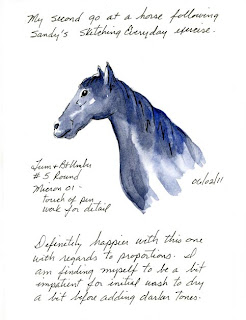 My second go at a horse following
Sandy's Sketching Everyday exercise.
#5 Round
Micron 01 -
touch of pen
work for detail
06/02/11
Definitely happier with this one
with regards to proportions. I
am finding myself to be a bit
impatient for initial wash to dry
a bit before adding darker tones.